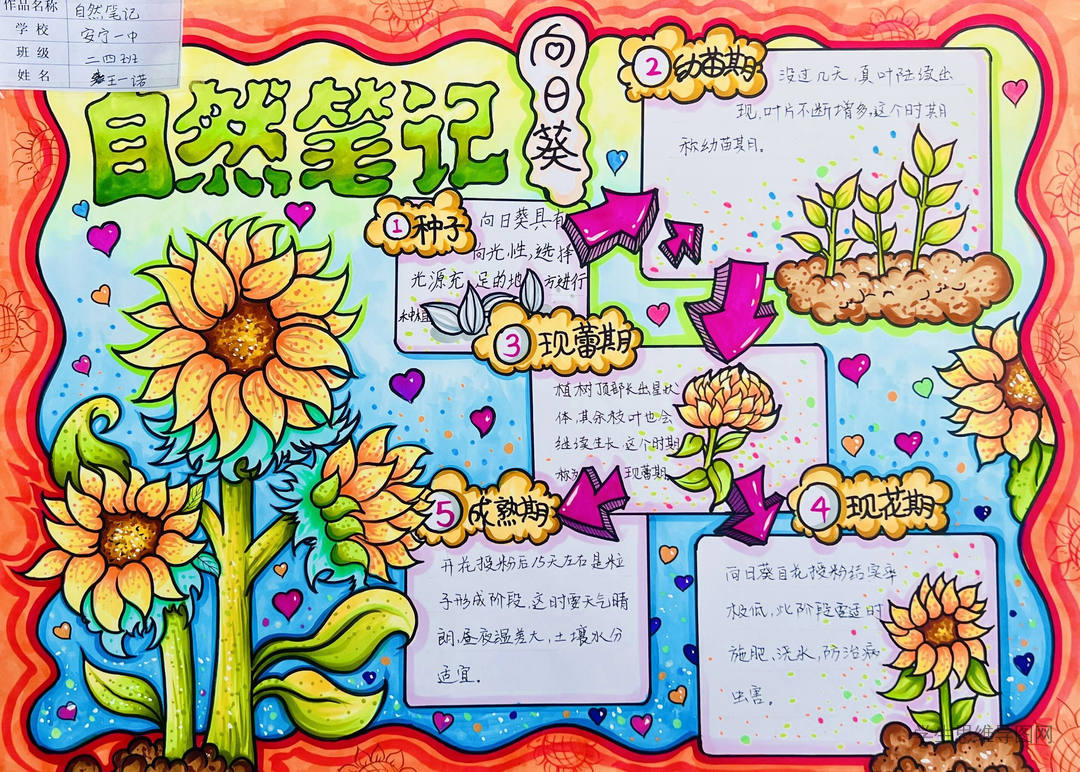 作品名称 自然笔记
学校 安宁一中
班级 二四班
姓名 王一诺
自然笔记
向日葵
1 种子
向日葵具有
向光性,选择
光源充足的地方进行
种植
2 幼苗期
没过几天,真叶陆续出
现,叶片不断增多,这个时期
称幼苗期。
3 现蕾期
植树顶部长出星状
体,其余枝叶也会
继续生长,这个时期
称为 现蕾期
4 现花期
向日葵自花授粉结实率
极低,此阶段需适时
施肥、浇水,防治病
虫害。
5 成熟期
开花授粉后15天左右是粒
子形成阶段,这时需天气晴
朗,昼夜温差大,土壤水分
适宜。
学生思维导图网